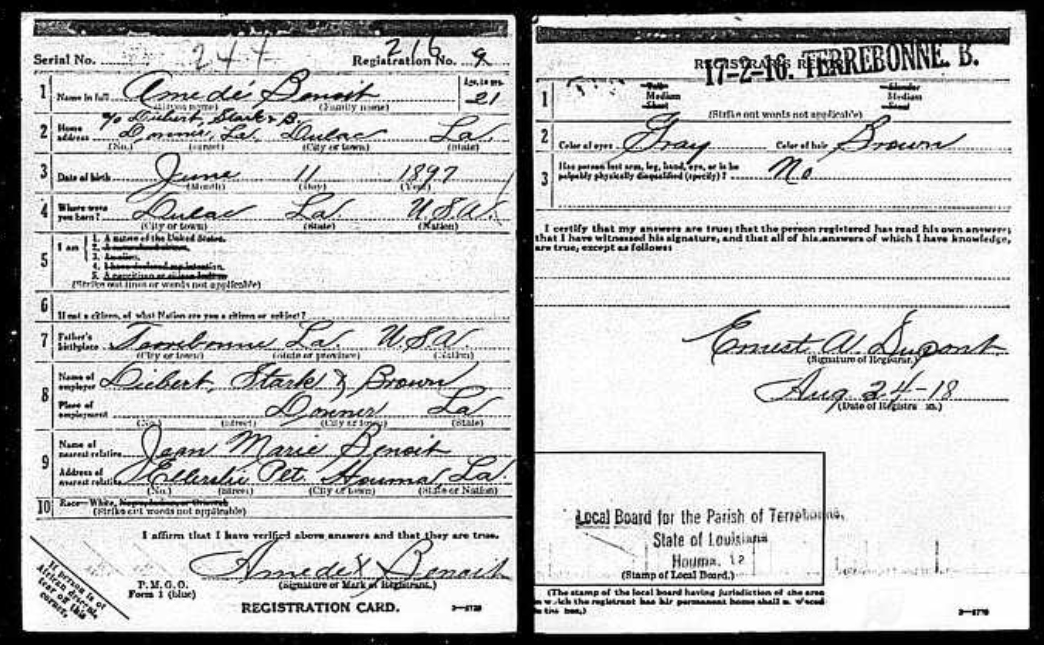 Serial No. 244 Registration No. 216 9
1 Name in full Amedé Benoit Age, in yrs. 21
(Given name) (Family name)
% Diebert, Stark & B.
2 Home address Donner, La. Dulac La.
(No.) (Street) (City or town) (State)
3 Date of birth June 11 1897
(Month) (Day) (Year)
4 Where were you born? Dulac La. U.S.A.
(City or town) (State) (Nation)
5 I am
1. A native of the United States.
2. A naturalized citizen.
3. An alien.
4. I have declared my intention.
5. A noncitizen or citizen Indian
(Strike out lines or words not applicable)
6 If not a citizen, of what Nation are you a citizen or subject?
7 Father's birthplace Terrebonne La. U.S.A.
(City or town) (State or province) (Nation)
8 Name of employer Diebert, Stark & Brown
Place of employment Donner La
(No.) (Street) (City or town) (State)
9 Name of nearest relative Jean Marie Benoit
Address of nearest relative Ellerslie Plt. Houma, La.
(No.) (Street) (City or town) (State or Nation)
10 Race—White, Negro, Indian, or Oriental
(Strike out words not applicable)
I affirm that I have verified above answers and that they are true.
Amedé X Benoit
(Signature or Mark of Registrant.)
P. M. G. O.
Form 1 (blue)
REGISTRATION CARD.
If person is of African descent, tear off this corner.
REGISTRAR'S REPORT
17-2-16. TERREBONNE. B.
1 Tall Medium Short Slender Medium Stout
(Strike out words not applicable)
2 Color of eyes Gray Color of hair Brown
3 Has person lost arm, leg, hand, eye, or is he palpably physically disqualified (specify)? No
I certify that my answers are true; that the person registered has read his own answers;
that I have witnessed his signature, and that all of his answers of which I have knowledge,
are true, except as follows:
Ernest A. Dupont
(Signature of Registrar.)
Aug. 24-18
(Date of Registration.)
Local Board for the Parish of Terrebonne,
State of Louisiana
Houma, 12
(Stamp of Local Board.)
(The stamp of the local board having jurisdiction of the area
in which the registrant has his permanent home shall be placed
in the box.)